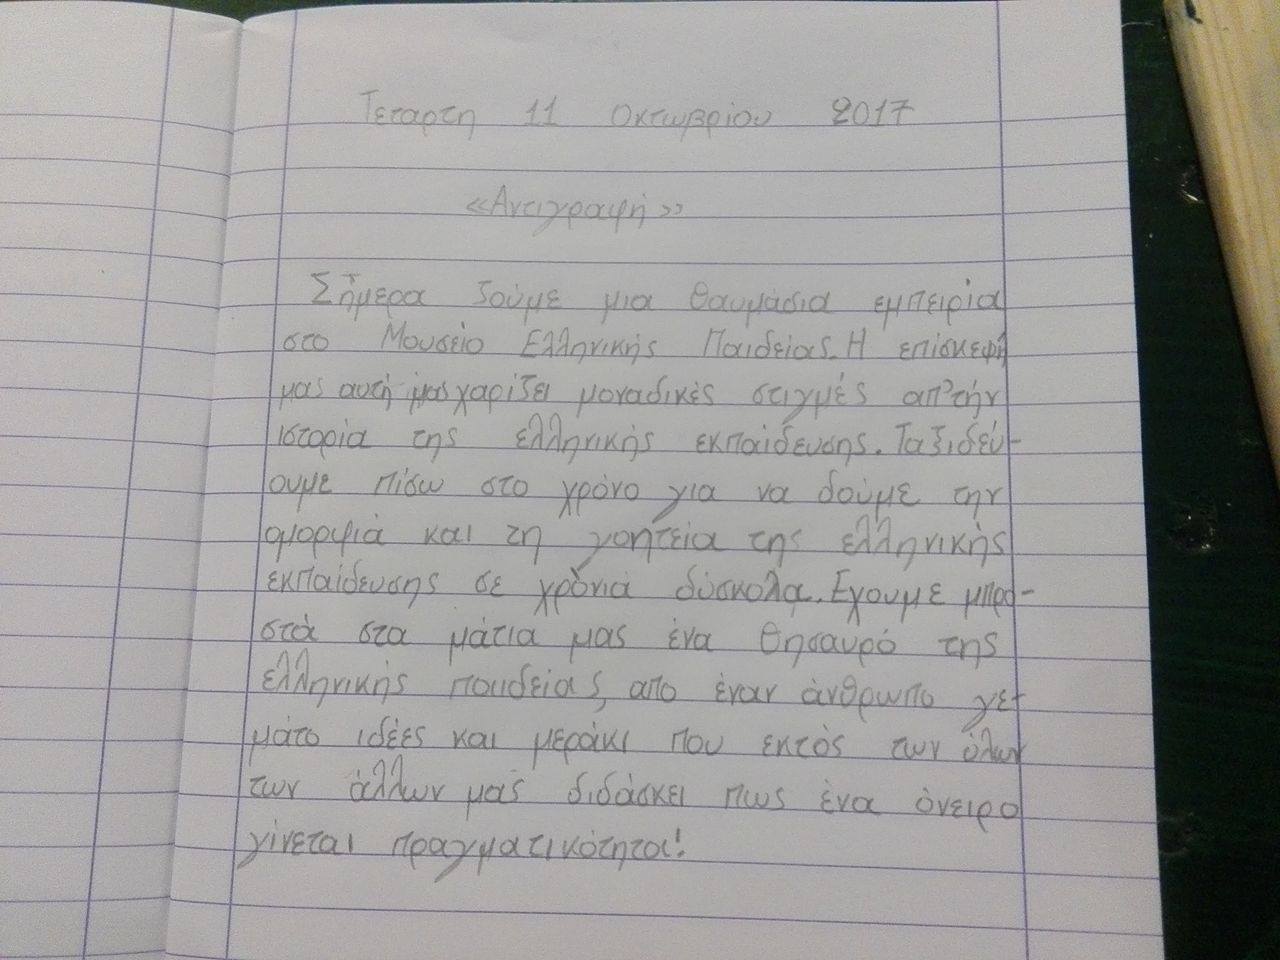 Τεταρτη 11 Οκτωβρίου 2017
«Αντιγραφή»
Σήμερα ζούμε μια θαυμάσια εμπειρία
στο Μουσείο Ελληνικής Παιδείας. Η επίσκεψή
μας αυτή μας χαρίζει μοναδικές στιγμές απ' τήν
ιστορία της ελληνικής εκπαίδευσης. Ταξιδεύ-
ουμε πίσω στο χρόνο για να δούμε την
ομορφιά και τη γοητεία της ελληνικής
εκπαίδευσης σε χρόνια δύσκολα. Εχουμε μπρο-
στά στα μάτια μας ένα θησαυρό της
ελληνικής παιδείας, απο έναν άνθρωπο γε-
μάτο ιδέες και μεράκι που εκτός των όλων
των άλλων μας διδάσκει πως ένα όνειρο
γίνεται πραγματικότητα!